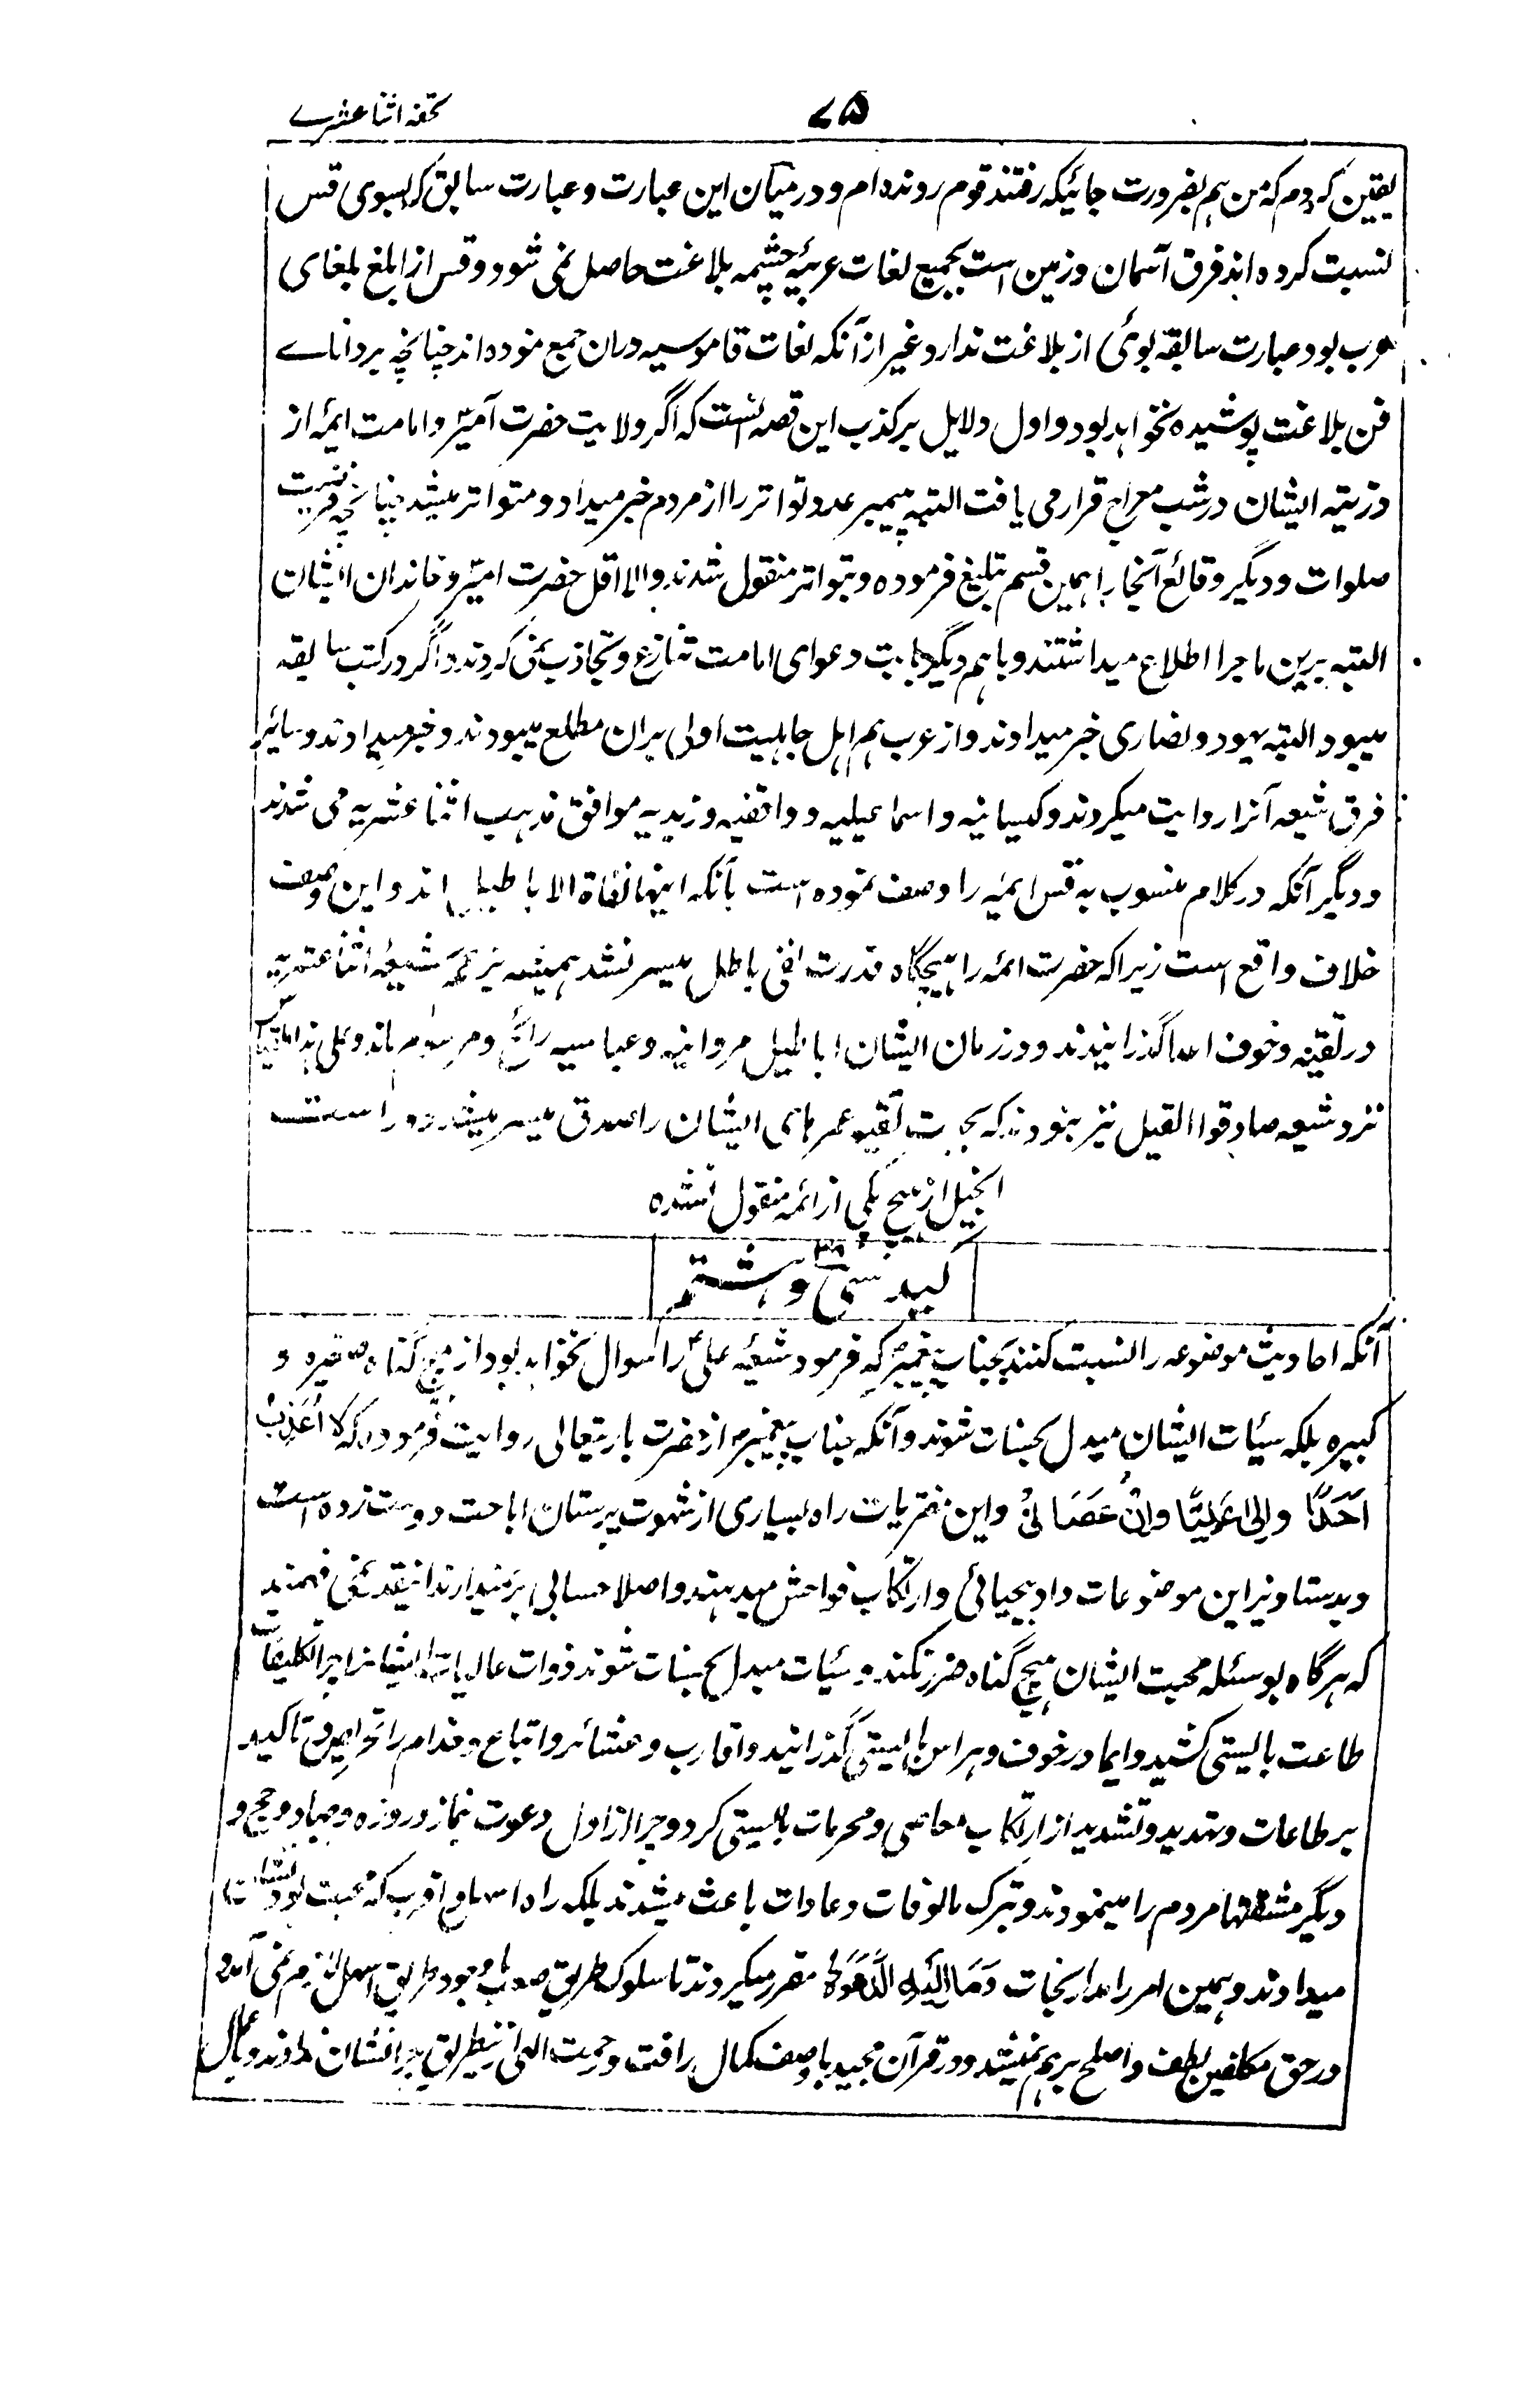 تحفه اثنا عشرے
۷۵
یقین کردم که من هم بضرورت جائیکه رفتند قوم رونده ام و درمیان این عبارت و عبارت سابق که بسوی قس
نسبت کرده اند فرق آسمان و زمین است بجمیع لغات عربیه چشمه بلاغت حاصل نمی شود و قس از ابلغ بلغای
عرب بود عبارت سابقه بوئی از بلاغت ندارد غیر از آنکه لغات قاموسیه دران جمع نموده اند چنانچه بر دانائے
فن بلاغت پوشیده نخواهد بود و اول دلایل بر کذب این قصه آنست که اگر ولایت حضرت امیرؑ و امامت ائمه از
ذریته ایشان در شب معراج قرار می یافت البته پیمبر عدد تواتر را از مردم خبر میداد و متواتر میشد چنانچه فرضیت
صلوات و دیگر وقائع آنجا را بهمین قسم تبلیغ فرموده و بتواتر منقول شدند و الا اقل حضرت امیرؑ و خاندان ایشان
البته برین ماجرا اطلاع میداشتند و با هم دیگر بابت دعوای امامت تنازع و تجاذب نمی کردند و اگر در کتب سابقه
میبود البته یهود و نصاری خبر میدادند و از عرب هم اهل جاهلیت اولی بران مطلع میبودند و خبر میدادند و سائر
فرق شیعه آنرا روایت میکردند و کیسانیه و اسماعیلیه و واقفیه و زیدیه موافق مذهب اثنا عشریه می شدند
و دیگر آنکه در کلام منسوب به قس ائمه را وصف نموده است بآنکه اینها نفاة الاباطیل اند و این وصف
خلاف واقع است زیرا که حضرت ائمه را هیچگاه قدرت نفی باطل میسر نشد همیشه بزعم شیعهٔ اثنا عشریه
در تقیه و خوف اعدا گذرانیدند و در زمان ایشان اباطیل مروانیه و عباسیه رائج و مرسوم ماند و علی هذا القیاس
نزد شیعه صادقوا القیل نیز نبودند که بجهت تقیه عمرهای ایشان را صدق میسر نیفتد و راست
انجیل از هیچ یکی از ائمه منقول نشده
کید سی و هشتم ۳۸
آنکه احادیث موضوعه را نسبت کنند بجناب پیغمبرؐ که فرمود شیعهٔ علیؑ را سوال نخواهد بود از هیچ گناه صغیره و
کبیره بلکه سیئات ایشان مبدل بحسنات شوند و آنکه جناب پیغمبرؐ از حضرت باریتعالی روایت فرموده که لا أُعَذِّبُ
اَحَدًا والی عَلِیًّا وإنْ عَصَانِیْ و این مفتریات راه بسیاری از شهوت پرستان اباحت دوست زده است
و بدستاویز این موضوعات داد بیحیائی و ارتکاب فواحش میدهند و اصلا حسابی برنمیدارند اینقدر نمی فهمند
که هرگاه بوسیله محبت ایشان هیچ گناه ضرر نکند و سیئات مبدل بحسنات شوند ذوات عالیات ایشانرا چرا تکلیفات
طاعت بایستی کشید و ایما در خوف و هراس بایستی گذرانید و اقارب و عشائر و اتباع و خدام را تحریص و تاکید
بر طاعات و تهدید و تشدید از ارتکاب معاصی و محرمات بایستی کرد و چرا از اول دعوت نماز و روزه و جهاد و حج و
دیگر مشقتها مردم را مینمودند و بترک مالوفات و عادات باعث میشدند بلکه راه اسهل و اقرب که محبت بود نشان
میدادند و همین امر را مدار نجات مقرر میکردند تا سلوک طریق صعب با وجود طریق اسهل لازم نمی آمد و
در حق مکلفین لطف و اصلح برهم نمیشد و در قرآن مجید با وصف کمال رافت و رحمت الهی ازینطریق چرا نشان ندادند و بر اعمال